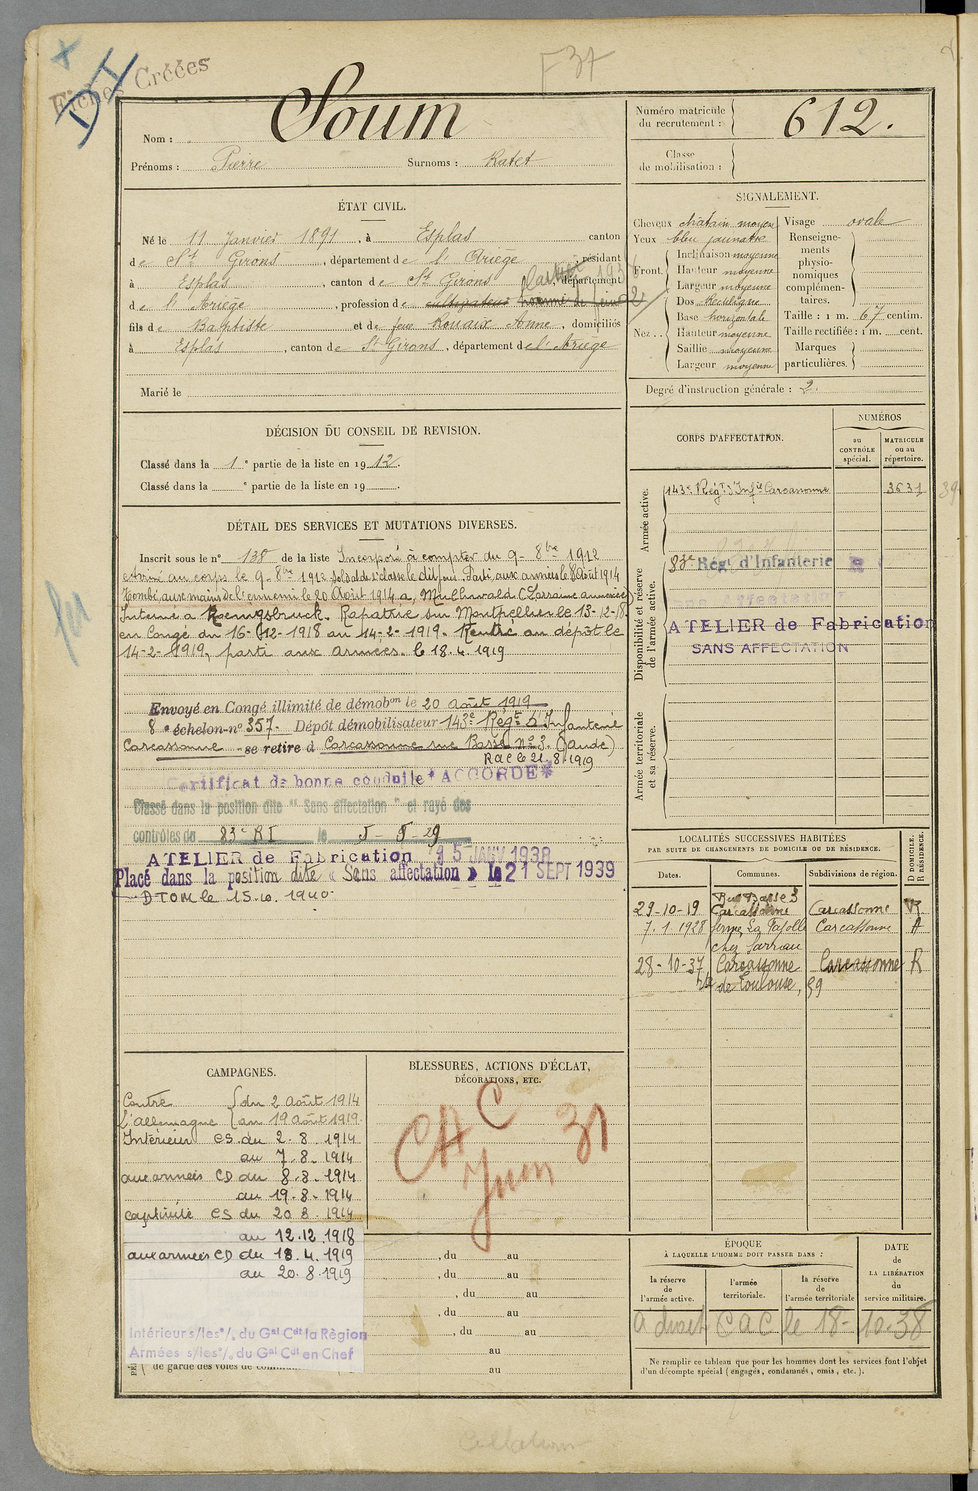 Fiches Créées
D I
F 37
Nom : Soum
Prénoms : Pierre Surnoms : Ratet
Numéro matricule du recrutement : 612.
Classe de mobilisation :
ÉTAT CIVIL.
Né le 11 Janvier 1891, à Esplas canton
de St Girons, département de l'Ariège, résidant
à Esplas, canton de St Girons, département
de l'Ariège, profession de cultivateur
fils de Baptiste et de feue Rouaix Anne, domiciliés
à Esplas, canton de St Girons, département de l'Ariège
Marié le
SIGNALEMENT.
Cheveux châtain moyen
Yeux bleu jaunatre
Front Inclinaison moyenne
Hauteur moyenne
Largeur moyenne
Nez Dos Rectiligne
Base horizontale
Hauteur moyenne
Saillie moyenne
Largeur moyenne
Visage ovale
Renseignements physionomiques complémentaires.
Taille : 1 m. 67 centim.
Taille rectifiée : 1 m. cent.
Marques particulières.
Degré d'instruction générale : 2.
DÉCISION DU CONSEIL DE REVISION.
Classé dans la 1e partie de la liste en 1912.
Classé dans la e partie de la liste en 19 .
DÉTAIL DES SERVICES ET MUTATIONS DIVERSES.
Inscrit sous le n° 138 de la liste Incorporé à compter du 9- 8bre 1912
Arrivé au corps le 9- 8bre 1912 soldat de 2e classe le dit jour. Parti aux armées le 8 Août 1914
Tombé aux mains de l'ennemi le 20 Août 1914 à Mulhwald (Lorraine annexée)
Interné à Koenigsbruck. Rapatrié sur Montpellier le 13-12-18.
en Congé du 16-12-1918 au 14-2-1919. Rentré au dépôt le
14-2-1919, parti aux armées le 18.4.1919
Envoyé en Congé illimité de démobon le 20 août 1919
8e échelon n° 357. Dépôt démobilisateur 143e Régt d'Infanterie
Carcassonne se retire à Carcassonne rue Basse n° 3. (Aude)
RdC le 21.8.1919
Certificat de bonne conduite *ACCORDÉ*
Classé dans la position dite "Sans affectation" et rayé des
contrôles du 83e RI le 5-5-29
ATELIER de Fabrication 15 JANV 1938
Placé dans la position dite « Sans affectation » le 21 SEPT 1939
DTOM le 15.10.1940
CORPS D'AFFECTATION.
NUMÉROS
au CONTRÔLE spécial.
MATRICULE ou au répertoire.
Armée active.
143e Régt d'Infie Carcassonne 3631
Disponibilité et réserve de l'armée active.
83e Régt d'Infanterie
Sans Affectation
ATELIER de Fabrication
SANS AFFECTATION
Armée territoriale et sa réserve.
LOCALITÉS SUCCESSIVES HABITÉES
PAR SUITE DE CHANGEMENTS DE DOMICILE OU DE RÉSIDENCE.
D DOMICILE. R RÉSIDENCE.
Dates. Communes. Subdivisions de région.
Rue Basse 3
29-10-19 Carcassonne Carcassonne R
7.1.1928 ferme La Fajolle Carcassonne
chez Sarrau
28-10-37 Carcassonne Carcassonne R
rte de Toulouse, 59
CAMPAGNES.
Contre du 2 août 1914
l'Allemagne au 19 août 1919.
Intérieur CS du 2.8.1914
au 7.8.1914
aux armées CD du 8.8.1914
au 19.8.1914
captivité CS du 20.8.1914
au 12.12.1918
aux armées CD du 18.4.1919
au 20.8.1919
Intérieur s/les o/. du Gal Cdt la Région
Armées s/les o/. du Gal Cdt en Chef
de garde des voies de
BLESSURES, ACTIONS D'ÉCLAT,
DÉCORATIONS, ETC.
CAC 31
Juin
, du au
, du au
, du au
, du au
, du au
au
au
ÉPOQUE
À LAQUELLE L'HOMME DOIT PASSER DANS :
la réserve de l'armée active.
l'armée territoriale.
la réserve de l'armée territoriale
DATE de LA LIBÉRATION du service militaire.
a droit CAC le 18-10-38
Ne remplir ce tableau que pour les hommes dont les services font l'objet
d'un décompte spécial (engagés, condamnés, omis, etc.).